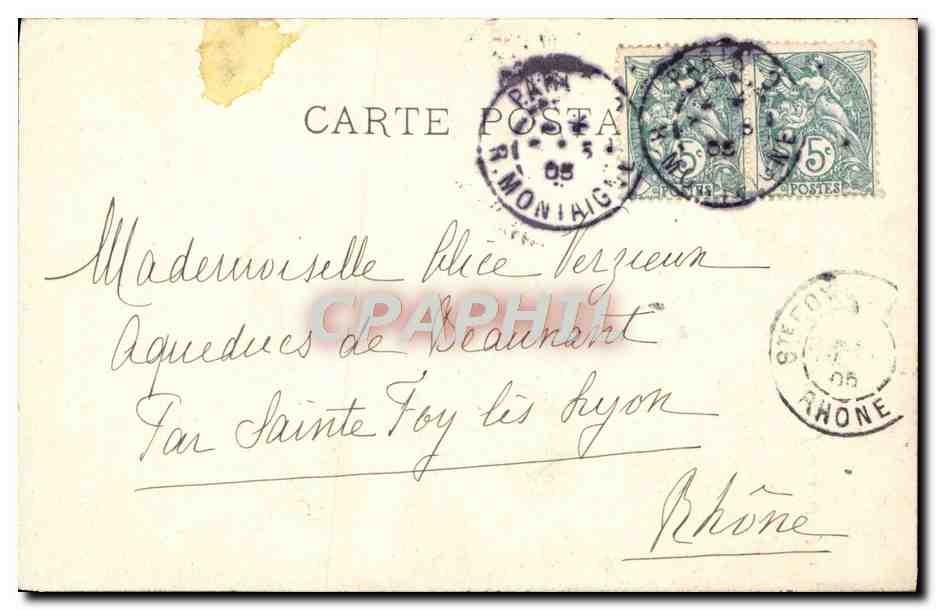 CARTE POSTA
PARIS
R. MONTAIGNE
05
PARIS
05
5c
POSTES
5c
POSTES
Mademoiselle Alice Verzieux
Aqueducs de Beaunant
Par Sainte Foy lès Lyon
Rhône
STE FOY
05
RHÔNE
CPAPHIL